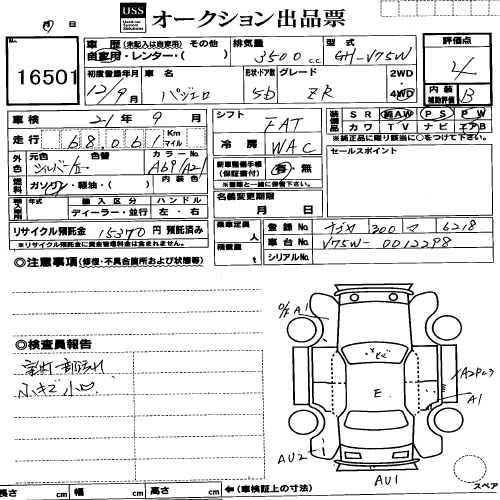 USS
Used-car System Solutions
オークション出品票
月 日
No.
16501
車歴 (未記入は自家用) その他
自家用・レンター・( )
排気量
3500 cc
型式
GH-V75W
評価点
4
初度登録年月
12/9月
車名
パジェロ
形状・ドア数
5D
グレード
ZR
2WD・
4WD
内装
補助評価
B
車検 21年 9月
シフト
FAT
装備品
SR 純AW PS PW
カワ TV ナビ エアB
※純正品に限り該当に○をつけて下さい。
走行 68,061 Km マイル
冷房
WAC
セールスポイント
外色
元色 色替
シルバー/
カラーNo.
A69/A21
内装色
燃料
ガソリン・軽油・( )
新車整備手帳
(保証書付)
有・無
※重整と一緒に保管下さい。
輸入車用
年式
輸入区分
ディーラー・並行
ハンドル
左・右
名義変更期限
月 日
リサイクル預託金 15370円 預託済み
※リサイクル預託金に資金管理料金は含まれません。
乗車定員
人
積載量
t
登録No. 300 マ 6218
車台No. V75W-0012298
シリアルNo.
◎注意事項 (修復・不具合箇所および状態等)
◎検査員報告
小キズ小凹
A1
E
A1
AU2
AU1
スペア
長さ cm 幅 cm 高さ cm ←(車検証上の寸法)